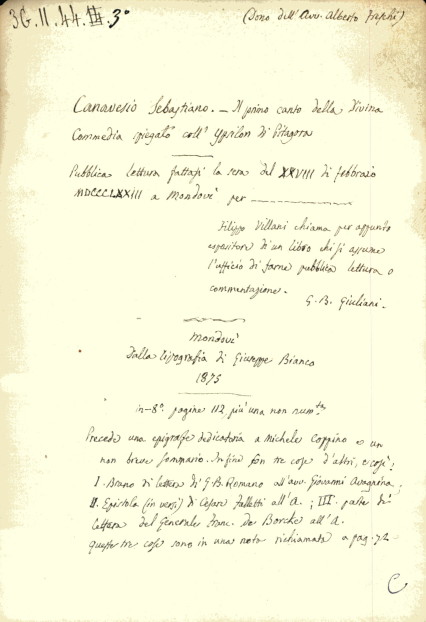 3G.II.44.III.3°
(Dono dell'Avv. Alberto Freschi)
Canavesio Sebastiano. — Il primo canto della Divina
Commedia spiegato coll' Ypsilon di Pitagora
Pubblica lettura fattasi la sera del XXVIII di febbraio
MDCCCLXXIII a Mondovì per
Filippo Villani chiama per appunto
espositore di un libro chi si assume
l'ufficio di farne pubblica lettura o
commentazione.
G. B. Giuliani.
Mondovì
Dalla tipografia di Giuseppe Bianco
1875
in-8° pagine 112, più una non num.ta
Precede una epigrafe dedicatoria a Michele Coppino e un
non breve sommario. Infine son tre cose d'altri, e cosi;
I. Brano di lettera di G. B. Romano all'avv. Giovanni
II. Epistola (in versi) di Cesare Falletti all'A.; III. parte di
lettera del Generale Franc. De Borcke all'A.
queste tre cose sono in una nota richiamata a pag. 72
C